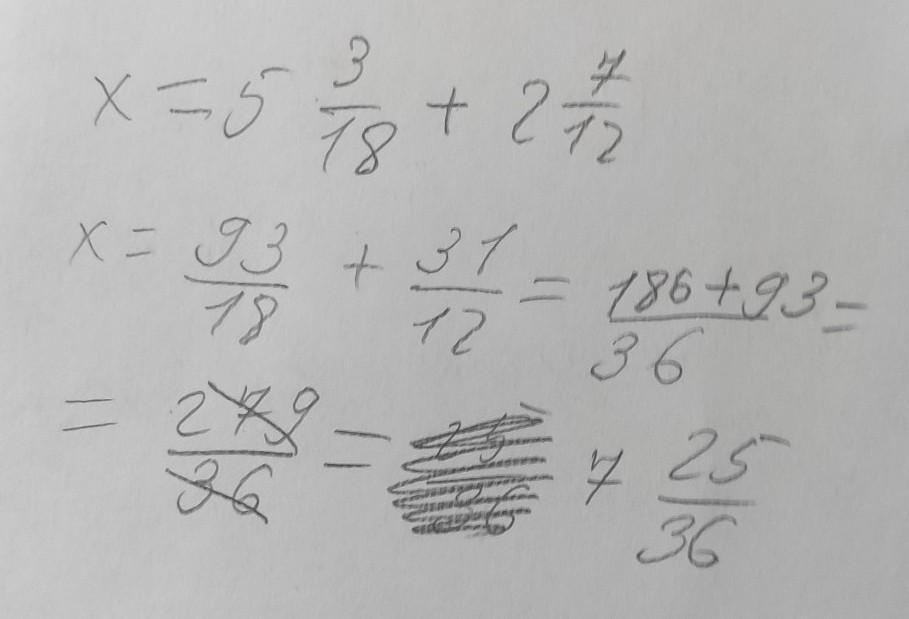 x = 5 3/18 + 2 7/12
x = 93/18 + 31/12 = (186+93)/36 =
= 279/36 = 7 25/36